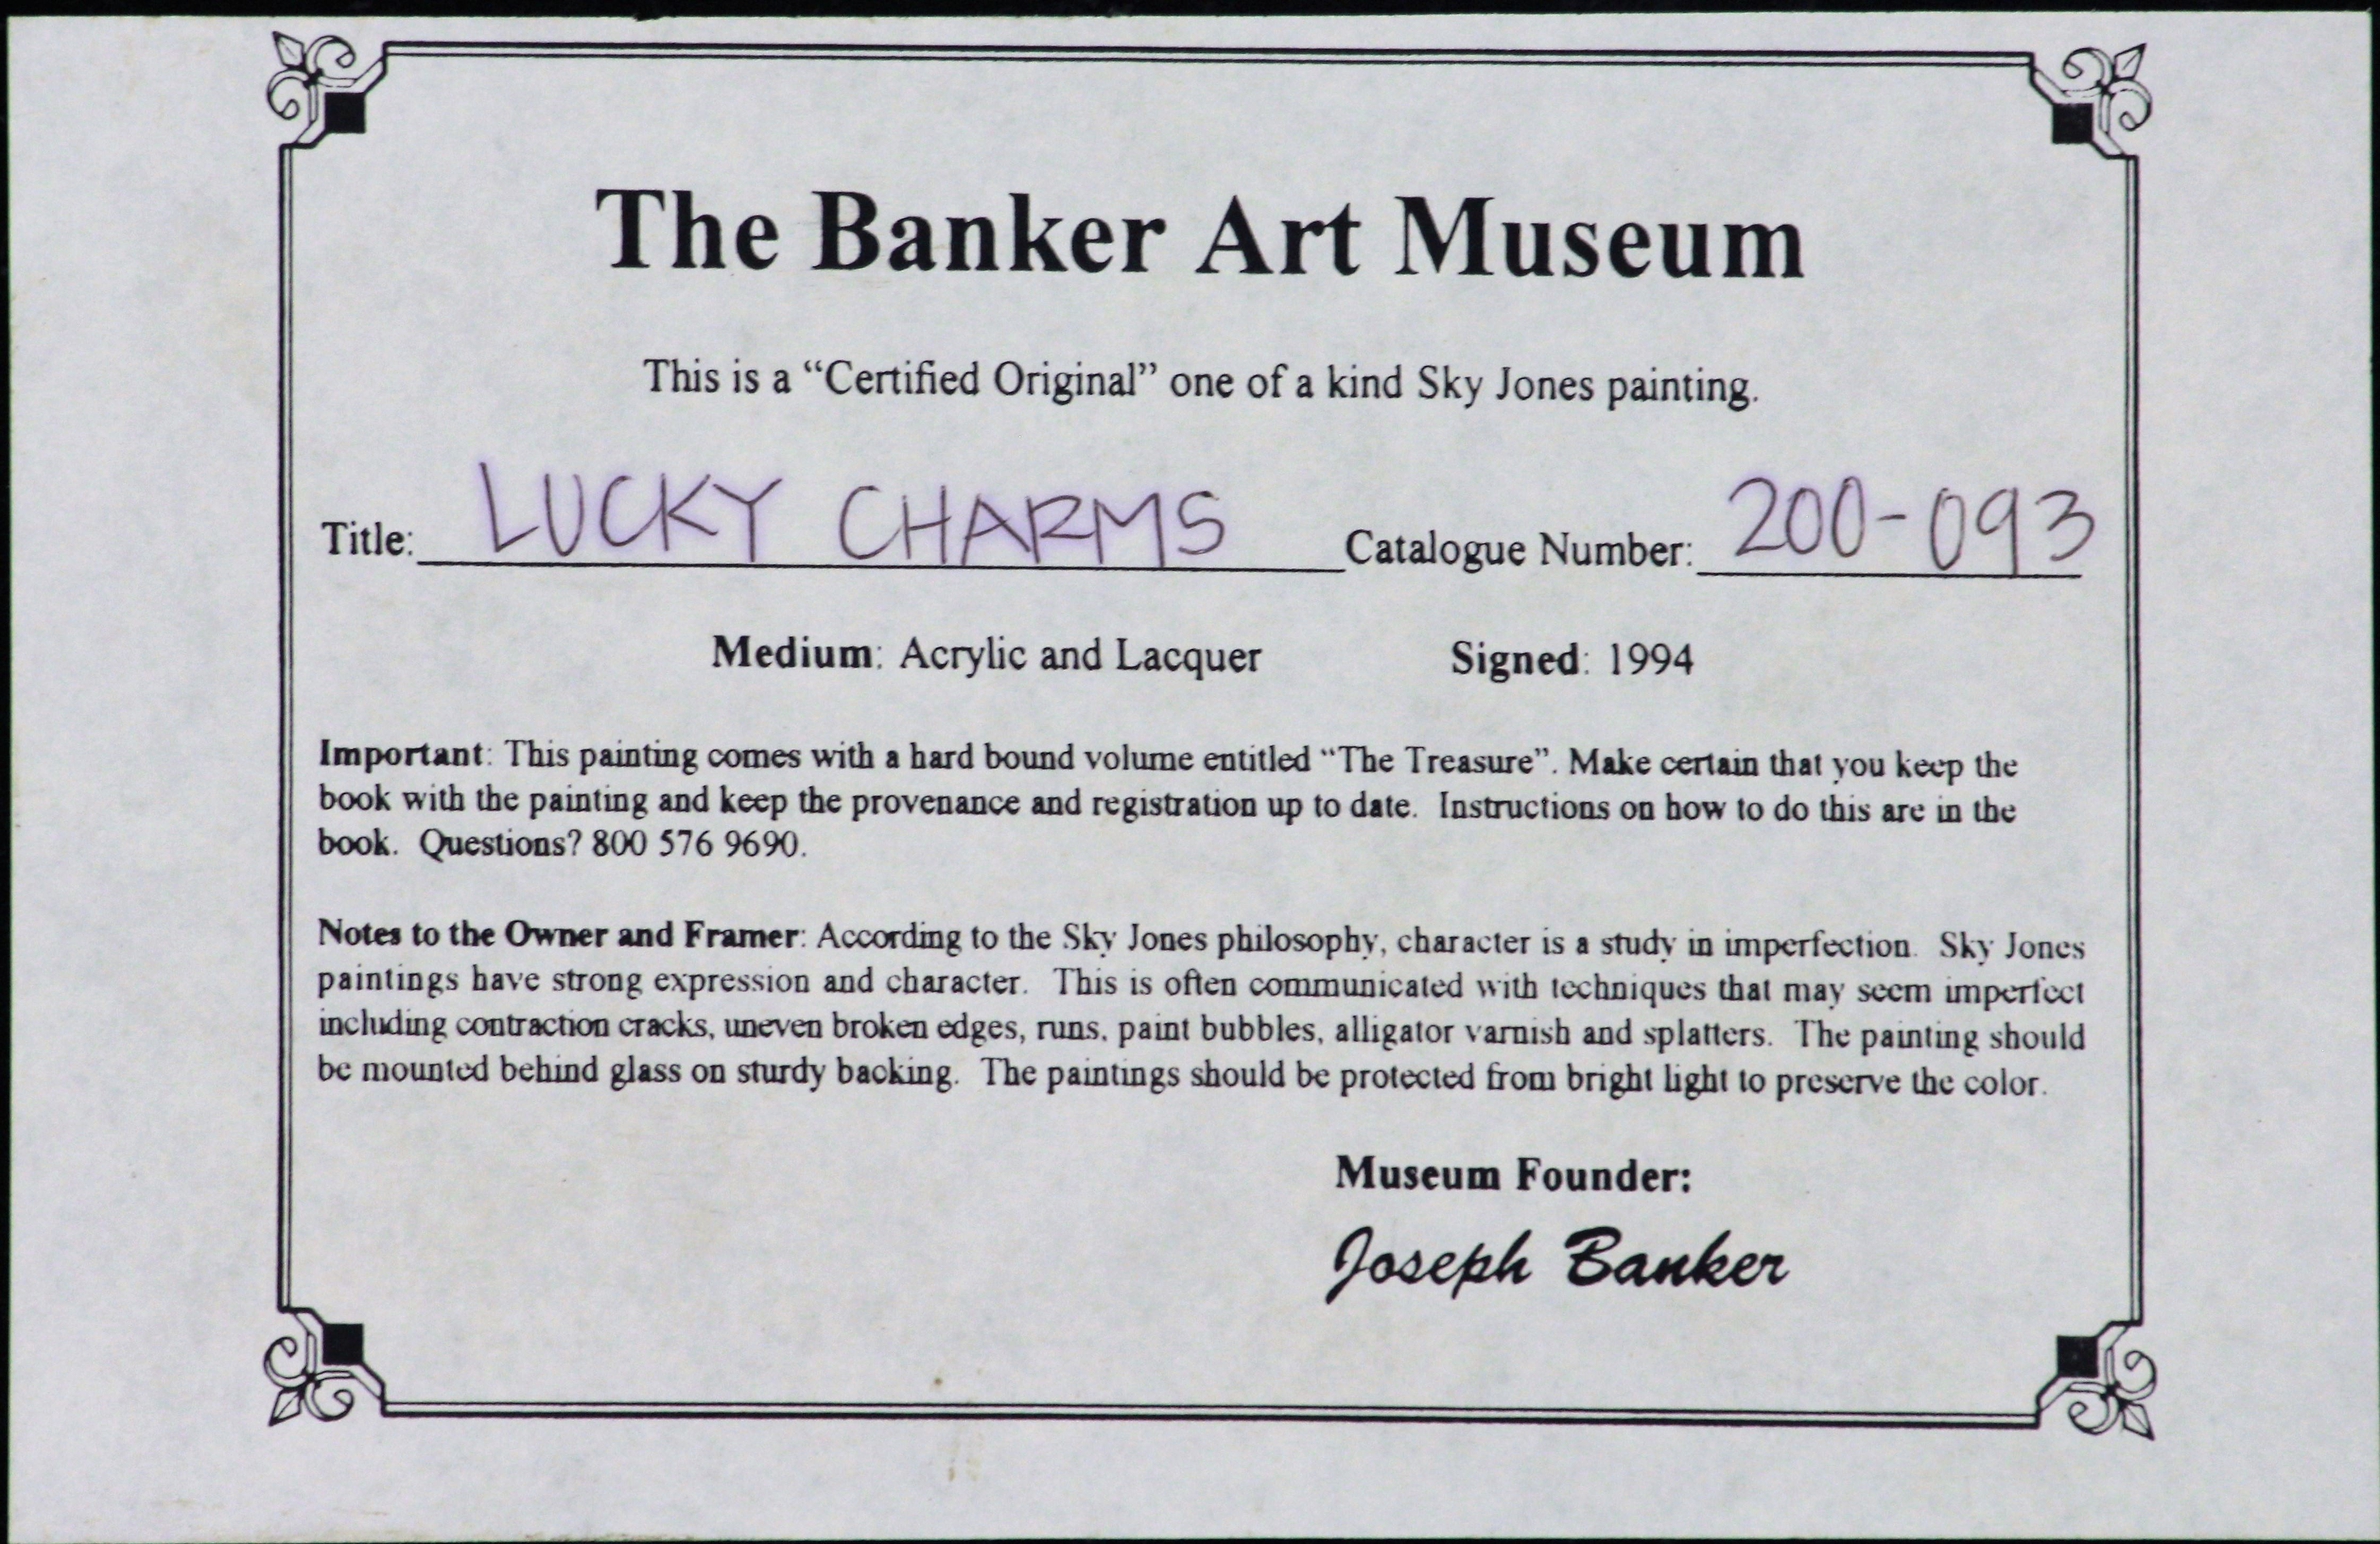 The Banker Art Museum
This is a “Certified Original” one of a kind Sky Jones painting.
Title: LUCKY CHARMS Catalogue Number: 200-093
Medium: Acrylic and Lacquer Signed: 1994
Important: This painting comes with a hard bound volume entitled “The Treasure”. Make certain that you keep the
book with the painting and keep the provenance and registration up to date. Instructions on how to do this are in the
book. Questions? 800 576 9690.
Notes to the Owner and Framer: According to the Sky Jones philosophy, character is a study in imperfection. Sky Jones
paintings have strong expression and character. This is often communicated with techniques that may seem imperfect
including contraction cracks, uneven broken edges, runs, paint bubbles, alligator varnish and splatters. The painting should
be mounted behind glass on sturdy backing. The paintings should be protected from bright light to preserve the color.
Museum Founder:
Joseph Banker